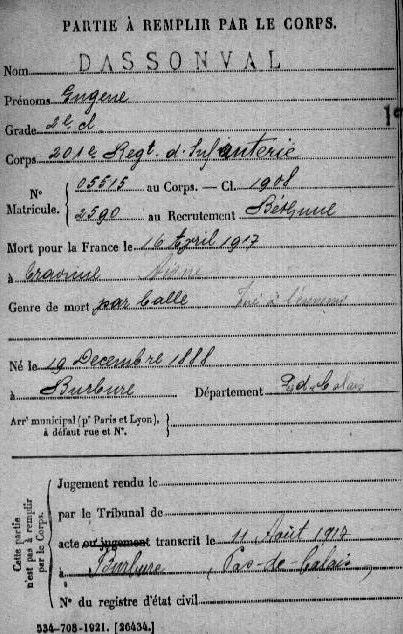 PARTIE À REMPLIR PAR LE CORPS.
Nom DASSONVAL
Prénoms Eugène
Grade 2e cl
Corps 201e Regt. d'Infanterie
N° Matricule. { 05515 au Corps. — Cl. 1908
2590 au Recrutement Béthune
Mort pour la France le 16 Avril 1917
à Craonne Aisne
Genre de mort par balle Tué à l'ennemi
Né le 19 Decembre 1888
à Burbure Département P. d. Calais
Arrt municipal (pr Paris et Lyon), à défaut rue et N°. }
Cette partie n'est pas à remplir par le Corps.
Jugement rendu le
par le Tribunal de
acte ou jugement transcrit le 11 Août 1917
à Burbure (Pas-de-Calais)
N° du registre d'état civil
534-708-1921. [26434.]